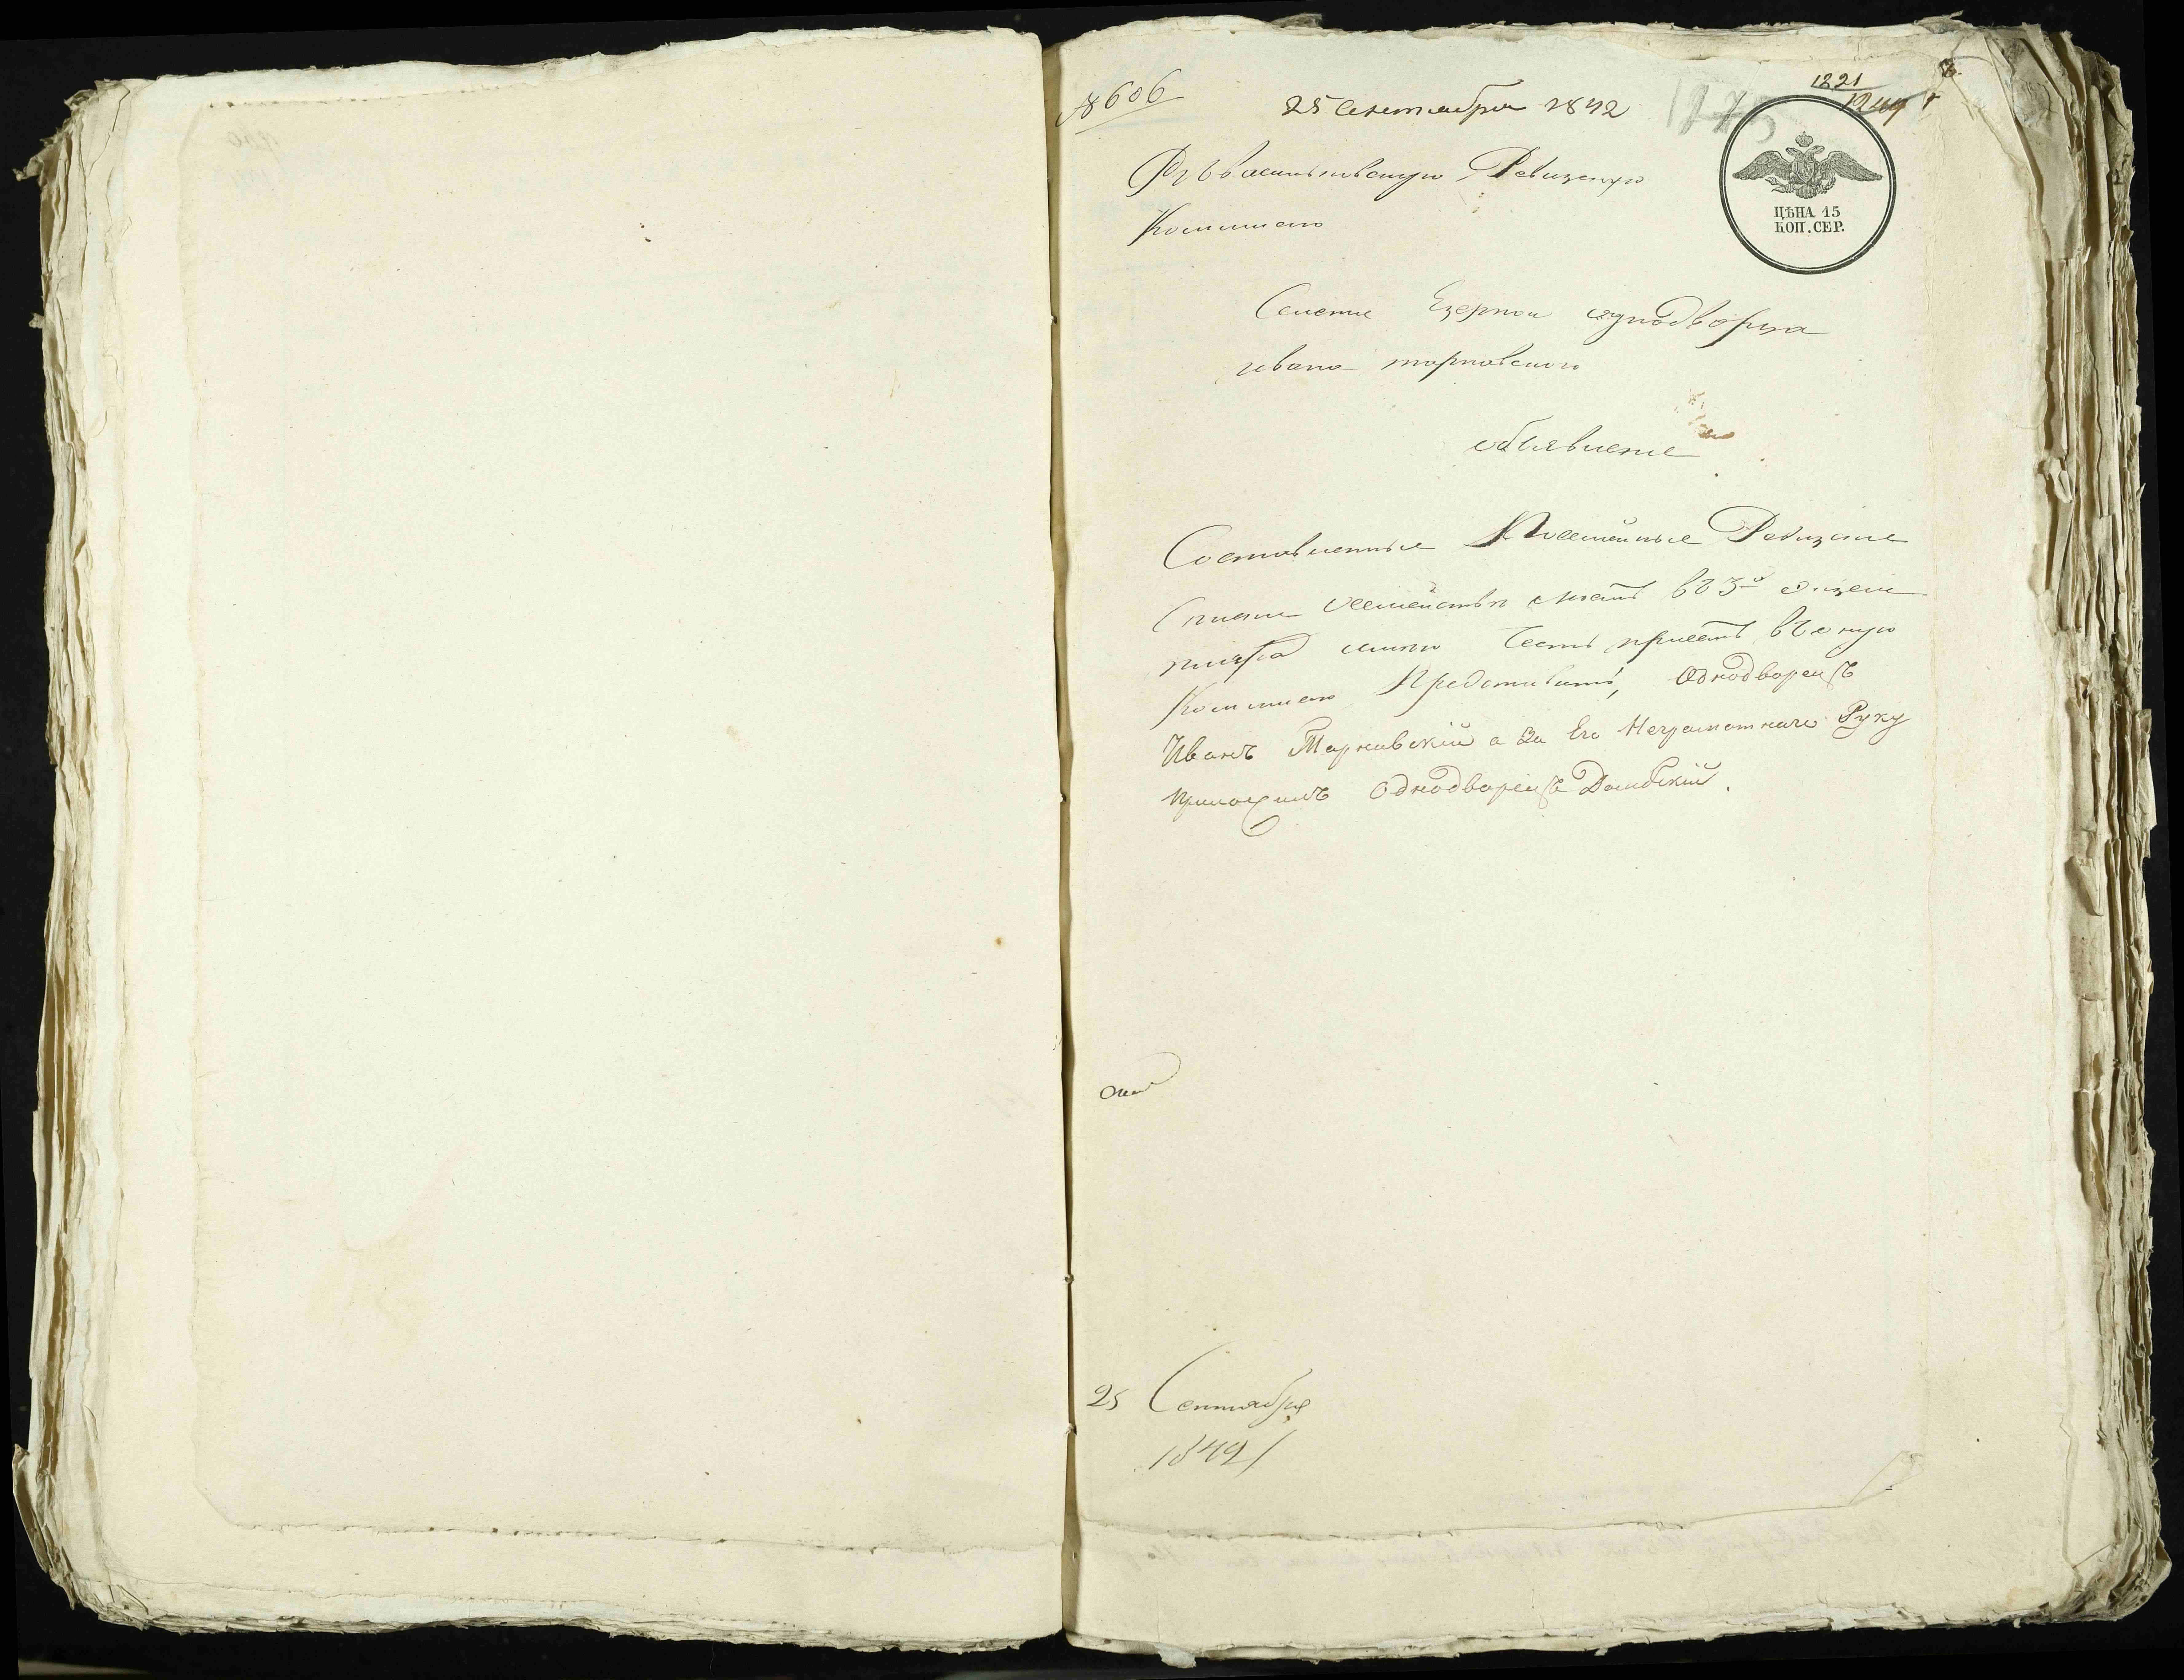 № 606
25 Сентября 1842
1221
ЦѢНА 15
КОП. СЕР.
Въ Васильковскую Ревизскую
Комисию
Селения Езерной однодворца
ивана тарновского
обьявление
Составленные Посемейные Ревизские
въ 3й
честь имеетъ въ оную
Комисию Представить, Однодворецъ
Иванъ Тарновский а За Его Неграмотнаго Руку
приложилъ Однодворецъ Домбский.
25 Сентября
1842